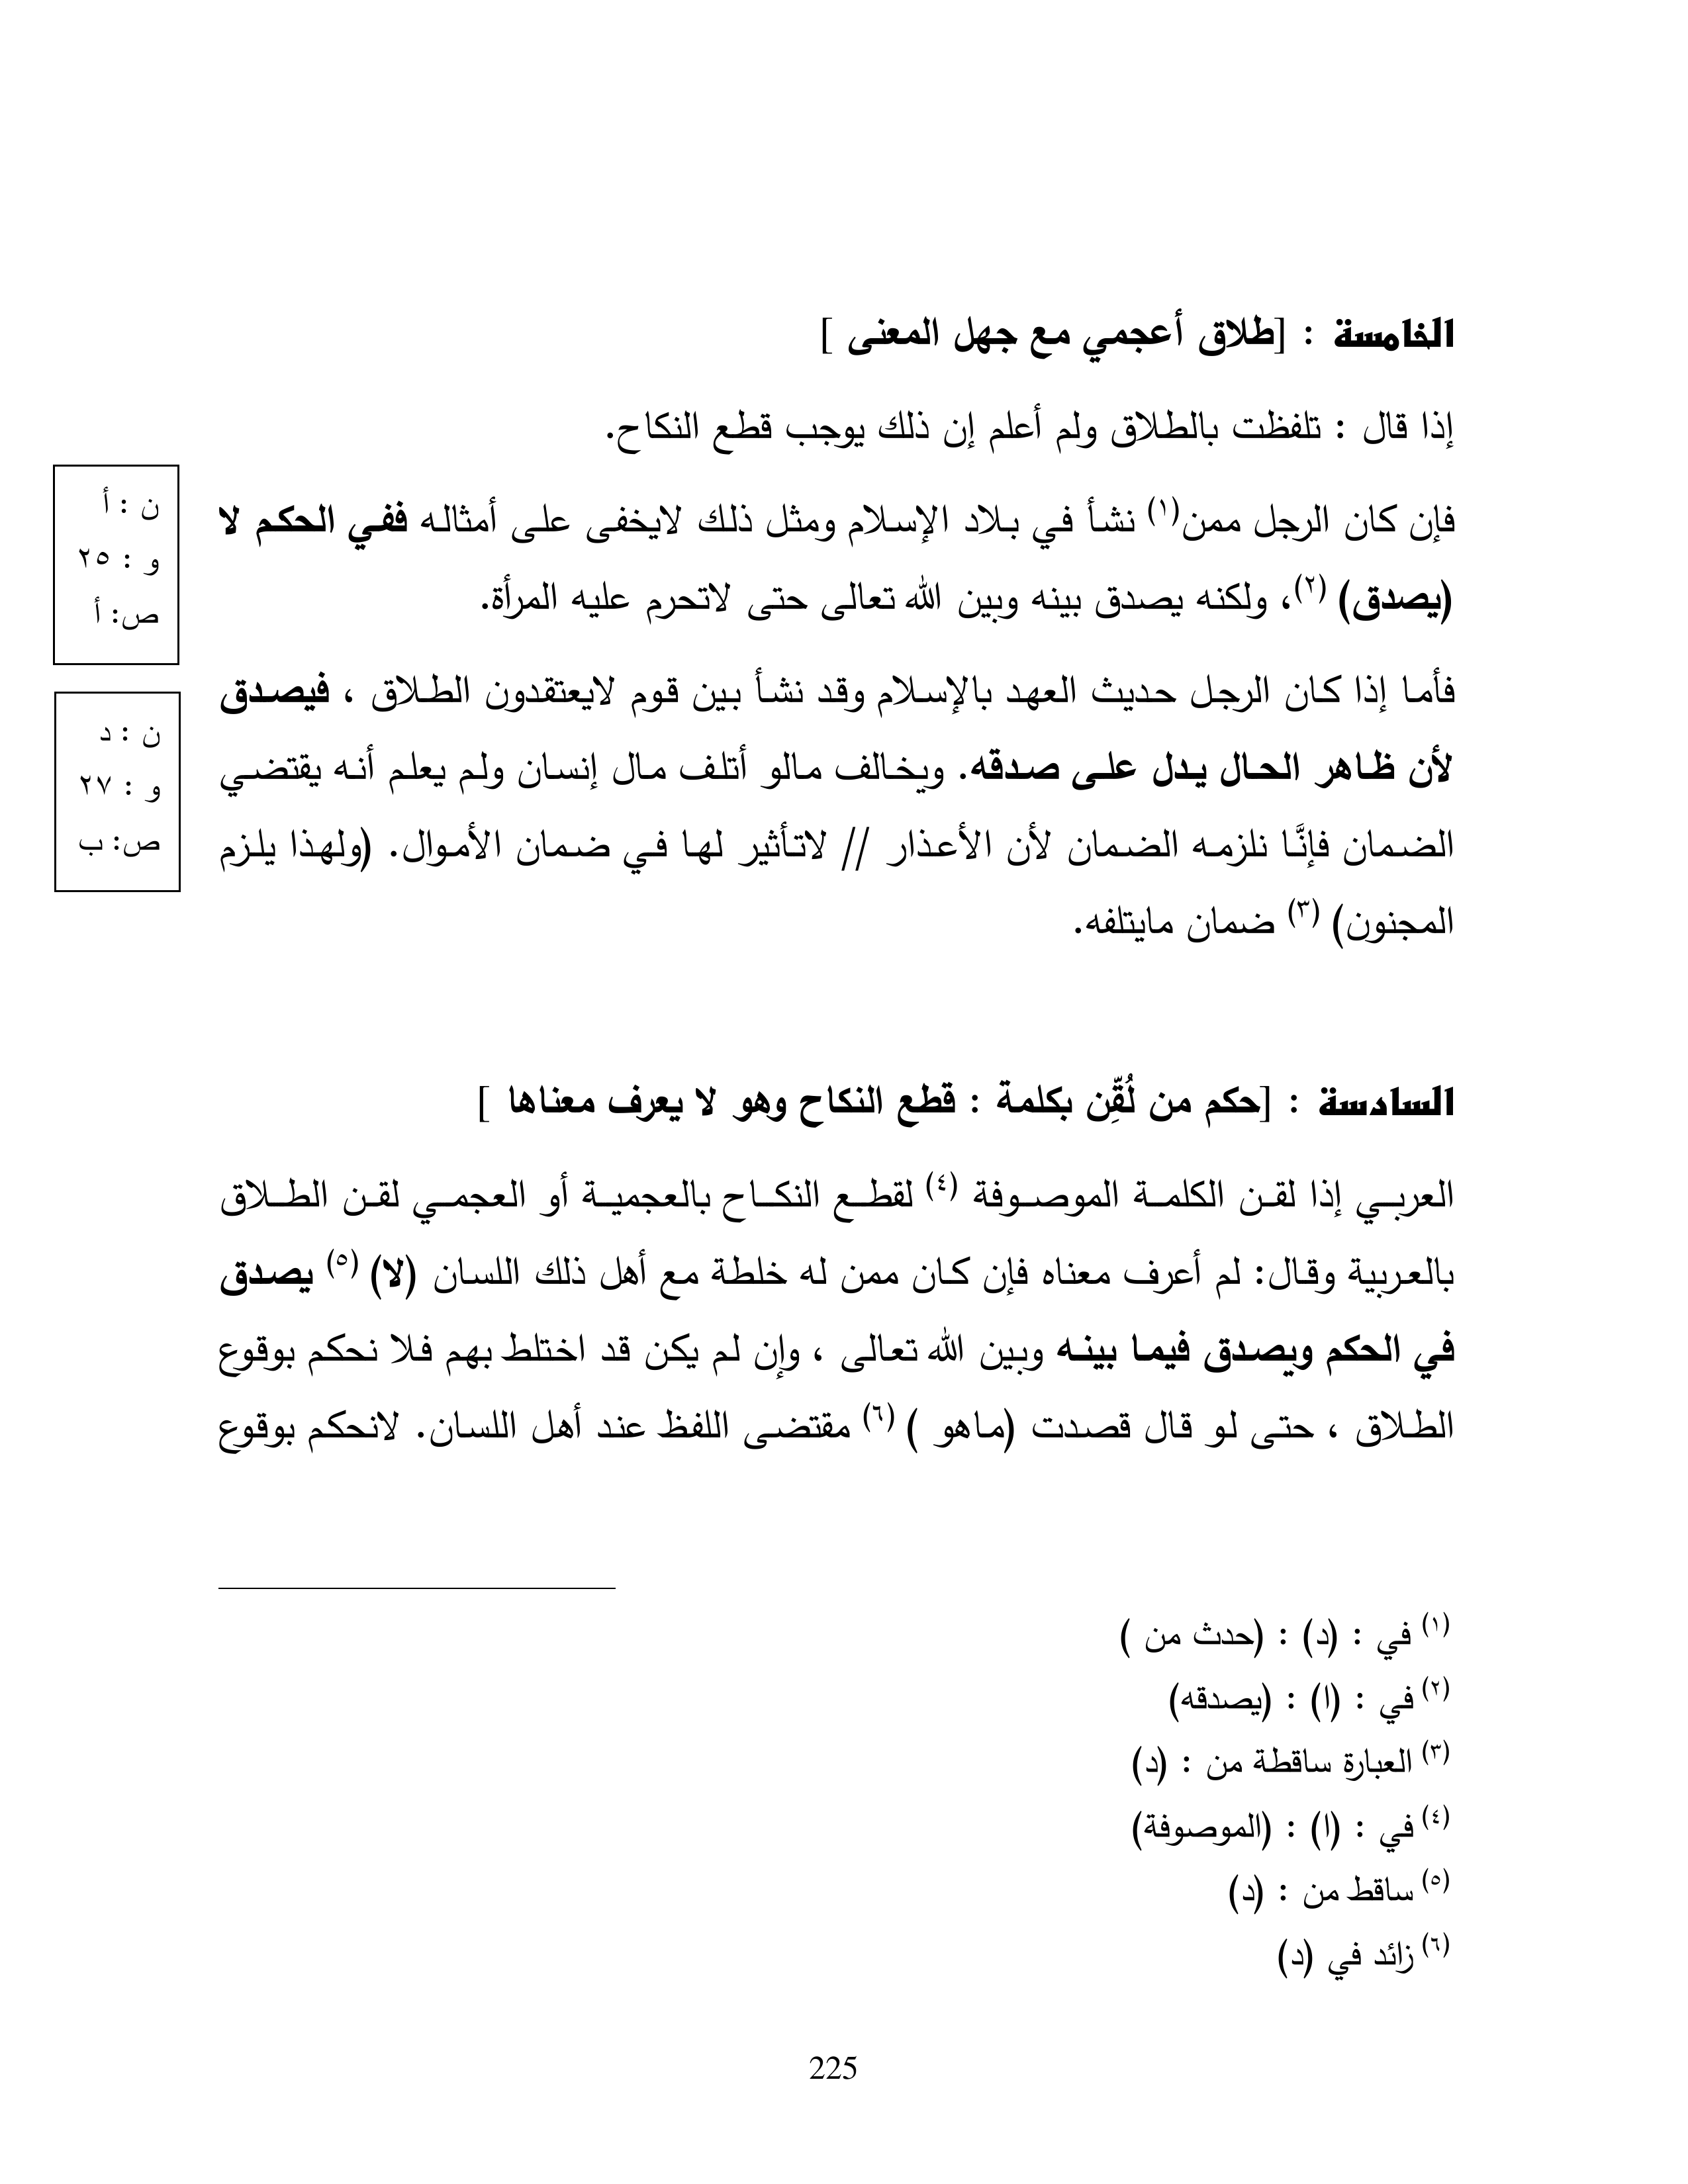 الخامسة : [طلاق أعجمي مع جهل المعنى ]
إذا قال : تلفظت بالطلاق ولم أعلم إن ذلك يوجب قطع النكاح.
فإن كان الرجل ممن(١) نشأ في بلاد الإسلام ومثل ذلك لايخفى على أمثاله ففي الحكم لا
(يصدق) (٢)، ولكنه يصدق بينه وبين الله تعالى حتى لاتحرم عليه المرأة.
فأما إذا كان الرجل حديث العهد بالإسلام وقد نشأ بين قوم لايعتقدون الطلاق ، فيصدق
لأن ظاهر الحال يدل على صدقه. ويخالف مالو أتلف مال إنسان ولم يعلم أنه يقتضي
الضمان فإنَّا نلزمه الضمان لأن الأعذار // لاتأثير لها في ضمان الأموال. (ولهذا يلزم
المجنون) (٣) ضمان مايتلفه.
ن : أ
و : ٢٥
ص: أ
ن : د
و : ٢٧
ص: ب
السادسة : [حكم من لُقِّن بكلمة : قطع النكاح وهو لا يعرف معناها ]
العربي إذا لقن الكلمة الموصوفة (٤) لقطع النكاح بالعجمية أو العجمي لقن الطلاق
بالعربية وقال: لم أعرف معناه فإن كان ممن له خلطة مع أهل ذلك اللسان (لا) (٥) يصدق
في الحكم ويصدق فيما بينه وبين الله تعالى ، وإن لم يكن قد اختلط بهم فلا نحكم بوقوع
الطلاق ، حتى لو قال قصدت (ماهو ) (٦) مقتضى اللفظ عند أهل اللسان. لانحكم بوقوع
(١) في : (د) : (حدث من )
(٢) في : (ا) : (يصدقه)
(٣) العبارة ساقطة من : (د)
(٤) في : (ا) : (الموصوفة)
(٥) ساقط من : (د)
(٦) زائد في (د)
225